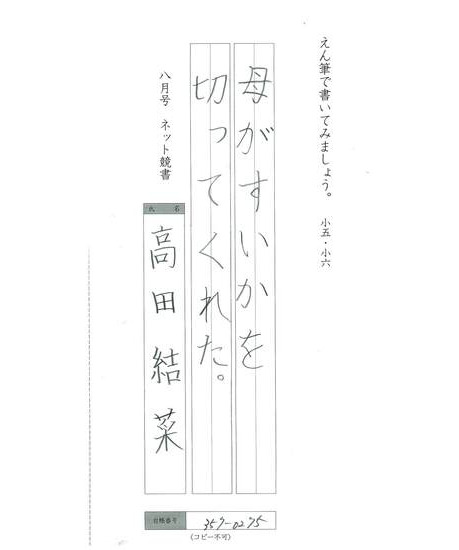 えん筆で書いてみましょう。 小五・小六
母がすいかを
切ってくれた。
八月号 ネット競書
氏 名
高田結菜
会員番号 359-0275
(コピー不可)